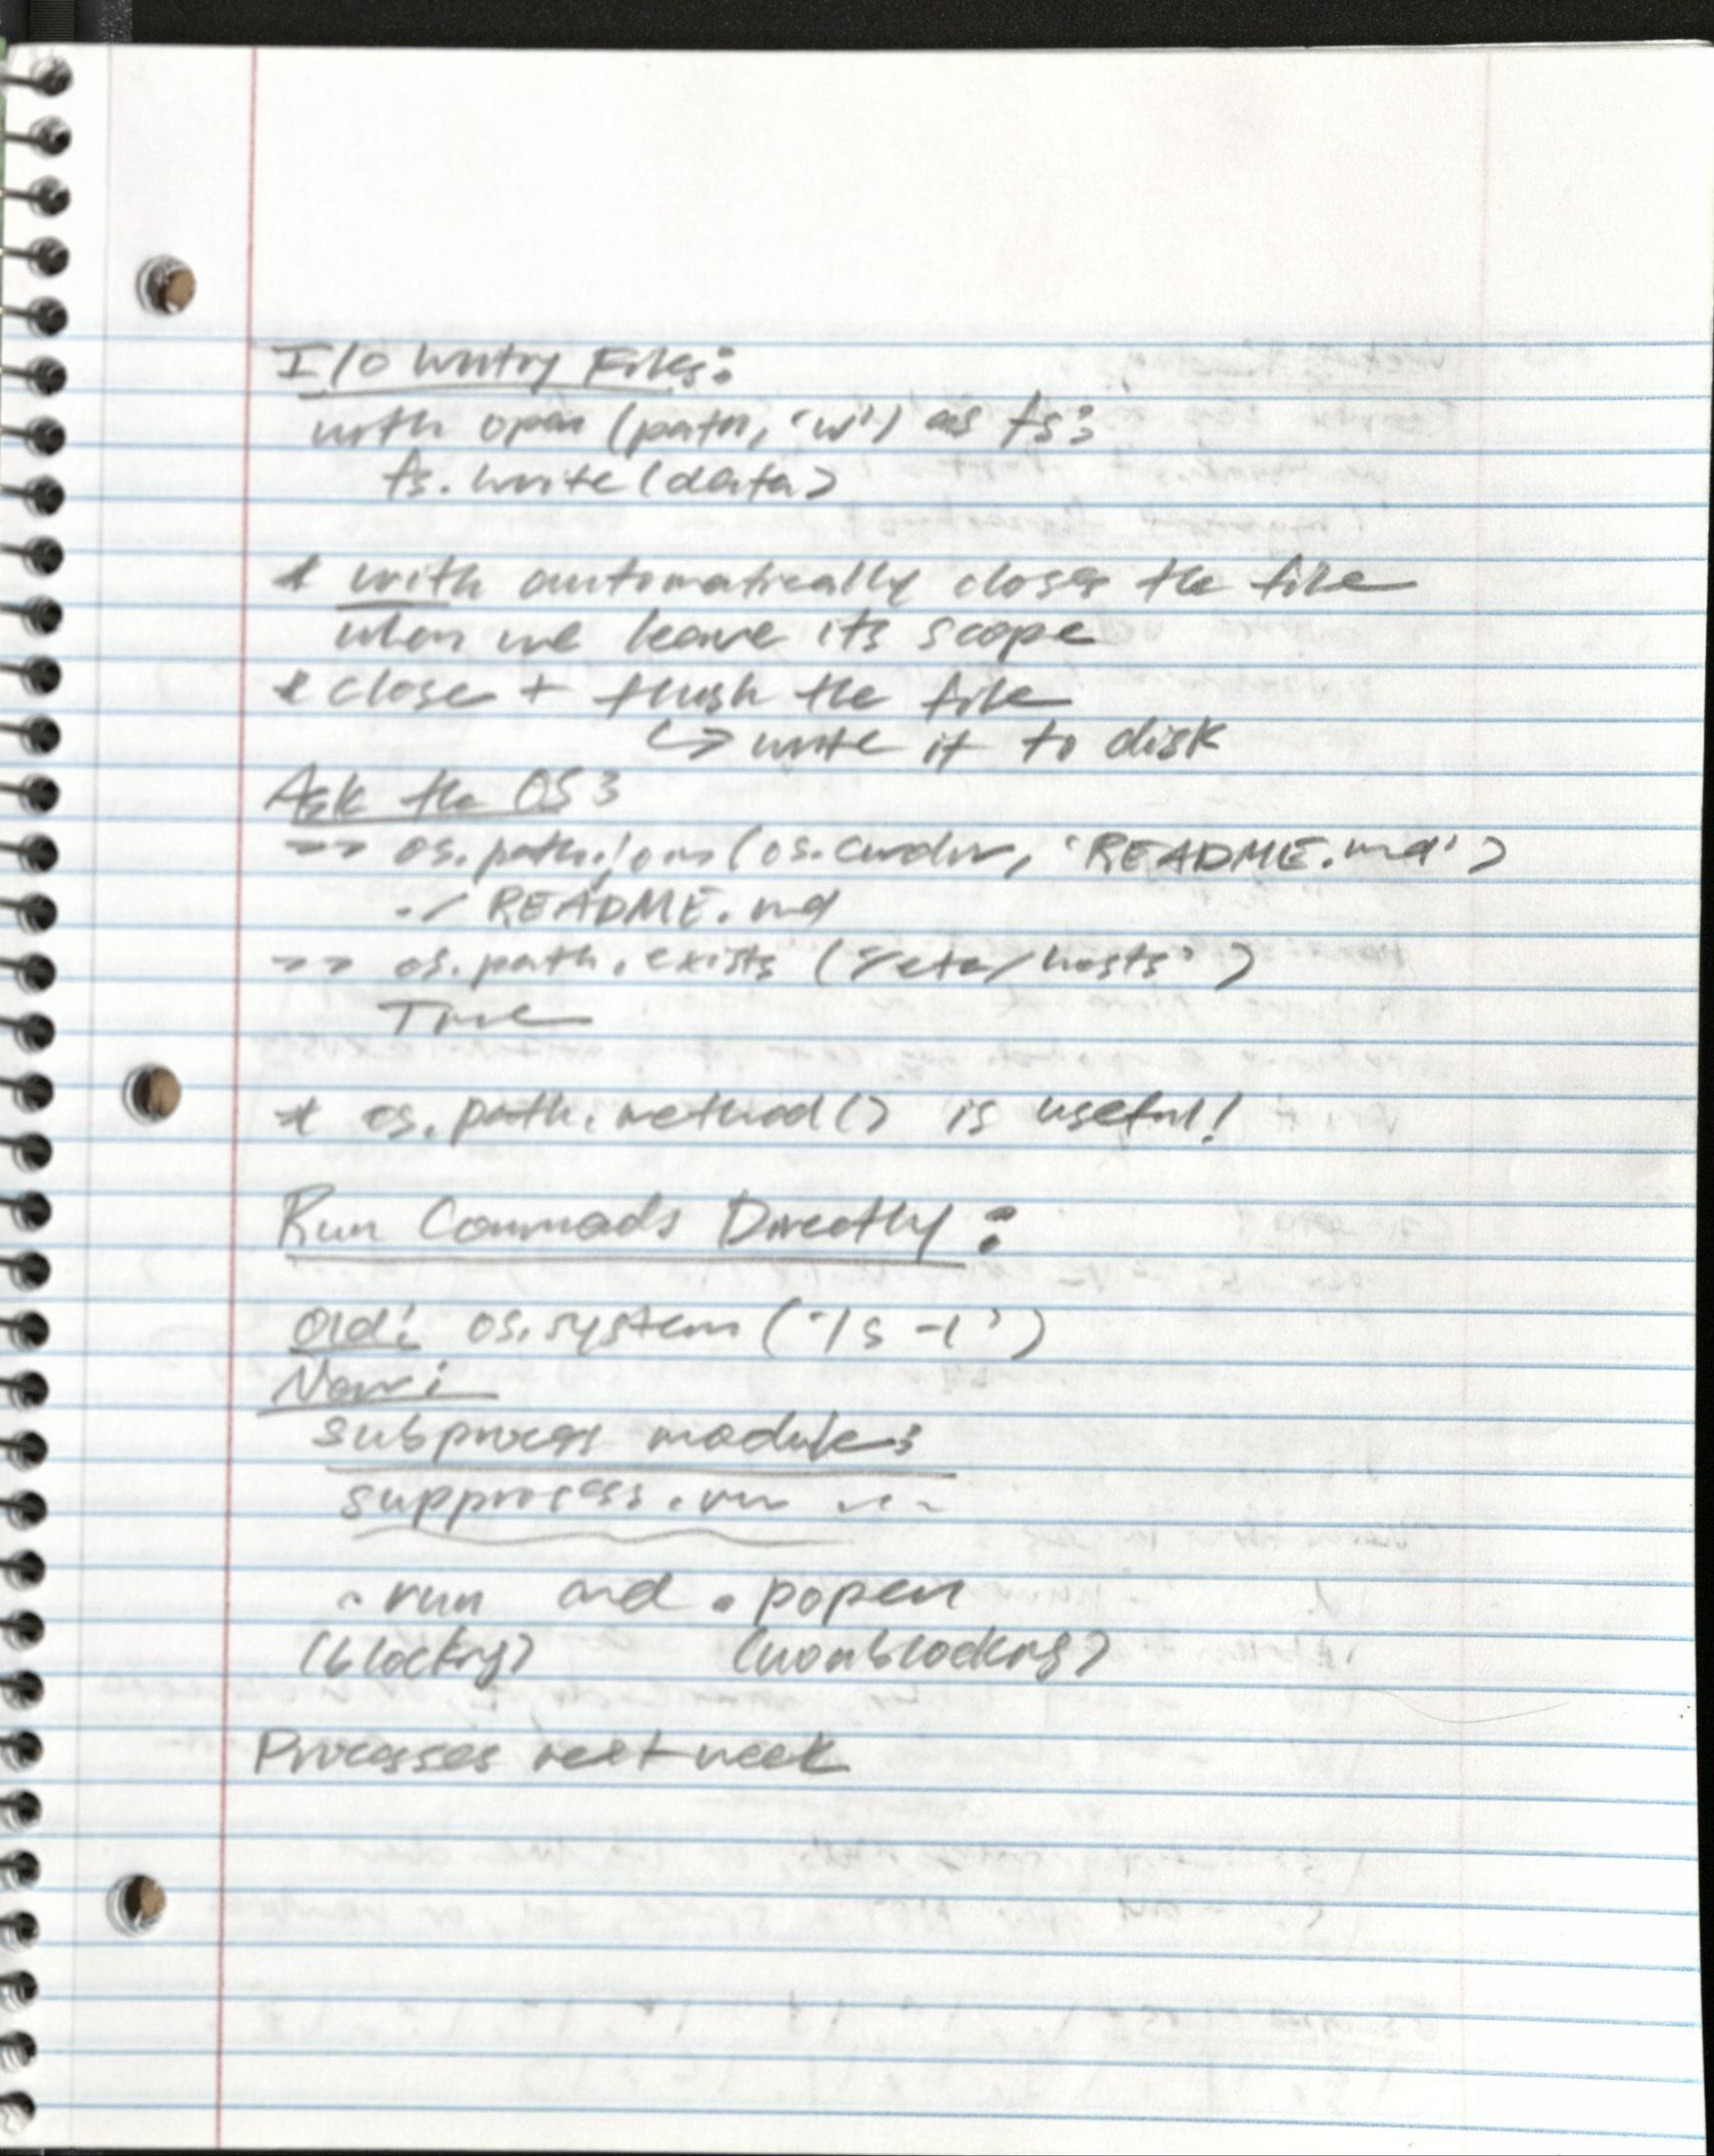 I/O Writing Files:
with open (path, 'w') as fs:
fs.write(data)
* with automatically closes the file
when we leave its scope
* close + flush the file
↳ write it to disk
Ask the OS:
>> os.path.join(os.curdir, 'README.md')
./README.md
>> os.path.exists('/etc/hosts')
True
* os.path.method() is useful!
Run Commads Directly:
Old: os.system('ls -l')
New:
subprocess module:
supprocess.run ...
.run and .popen
(blocking) (nonblocking)
Processes next week